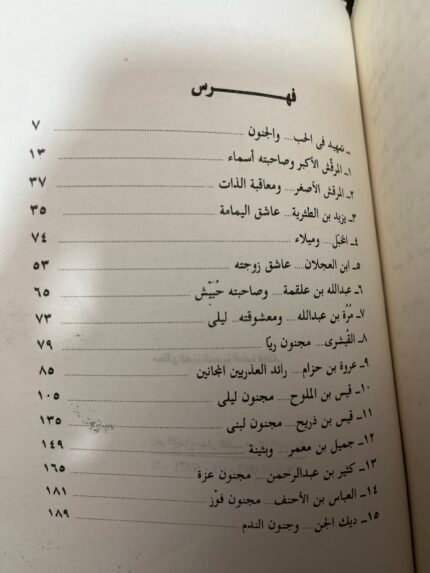 فهــــرس
ـ تمهيد فى الحب .... والجنون ........ ٧
١ـ المرقش الأكبر وصاحبته أسماء ........ ١٣
٢ـ المرقش الأصغر .... ومعاقبة الذات ........ ٣٧
٣ـ يزيد بن الطثرية .... عاشق اليمامة ........ ٣٥
٤ـ المخبل .... وميلاء ........ ٧٤
٥ـ ابن العجلان .... عاشق زوجته ........ ٥٣
٦ـ عبدالله بن علقمة .... وصاحبته حُبَيْش ........ ٦٥
٧ـ مُرّة بن عبدالله .... ومعشوقته .... ليلى ........ ٧٣
٨ـ القُشرى .... مجنون ريا ........ ٧٩
٩ـ عروة بن حزام .... رائد العذريين المجانين ........ ٨٥
١٠ـ قيس بن الملوح .... مجنون ليلى ........ ١٠٥
١١ـ قيس بن ذريح .... مجنون لبنى ........ ١٣٥
١٢ـ جميل بن معمر .... وبثينة ........ ١٤٩
١٣ـ كثير بن عبدالرحمن .... مجنون عزة ........ ١٦٥
١٤ـ العباس بن الأحنف .... مجنون فوْز ........ ١٨١
١٥ـ ديك الجن .... وجنون الندم ........ ١٨٩